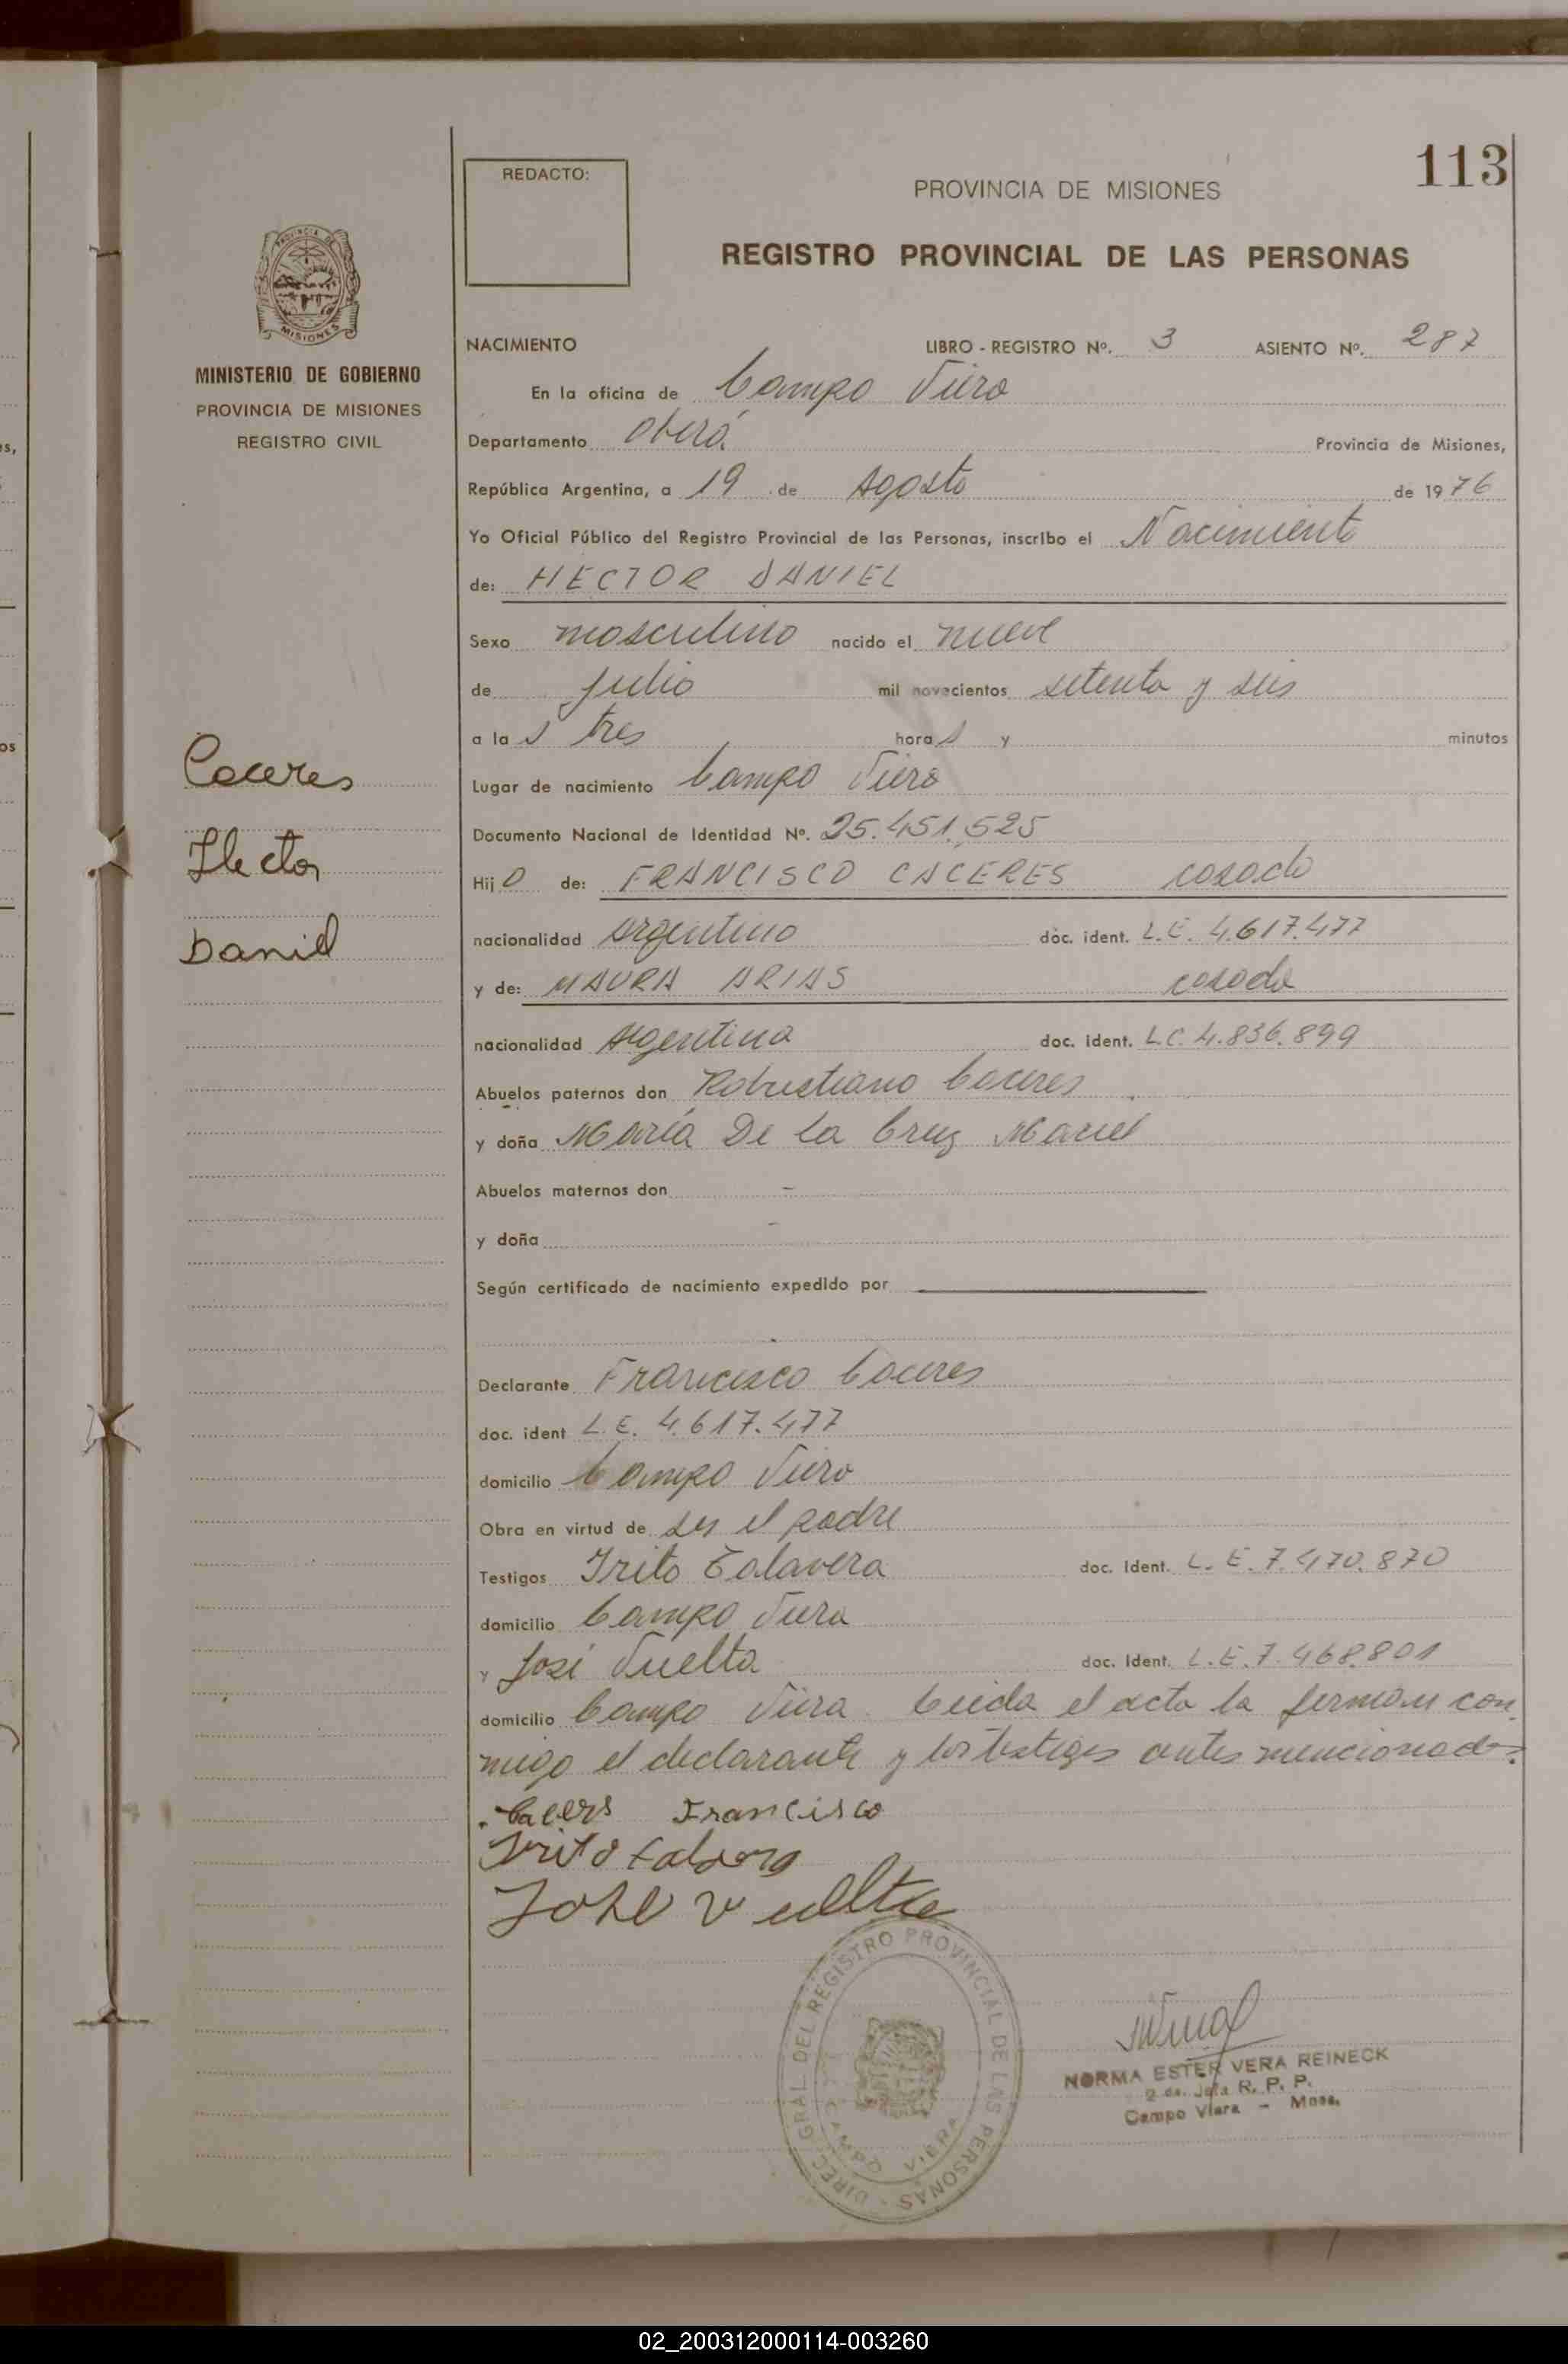 113
REDACTO:
PROVINCIA DE MISIONES
REGISTRO PROVINCIAL DE LAS PERSONAS
PROVINCIA DE
MISIONES
MINISTERIO DE GOBIERNO
PROVINCIA DE MISIONES
REGISTRO CIVIL
NACIMIENTO LIBRO - REGISTRO Nº. 3 ASIENTO Nº. 287
En la oficina de Campo Viera
Departamento Oberá Provincia de Misiones,
República Argentina, a 19 de Agosto de 1976
Yo Oficial Público del Registro Provincial de las Personas, inscribo el Nacimiento
de: HECTOR DANIEL
Sexo masculino nacido el nueve
de julio mil novecientos setenta y seis
a la s tres hora s y minutos
Lugar de nacimiento Campo Viera
Documento Nacional de Identidad Nº. 25.451.525
Hijo de: FRANCISCO CACERES casado
nacionalidad argentino doc. ident. L.E. 4.617.477
y de: MAURA ARIAS casada
nacionalidad Argentina doc. ident. L.C. 4.836.899
Abuelos paternos don Robustiano Caceres
y doña María De la Cruz Maciel
Abuelos maternos don -
y doña -
Según certificado de nacimiento expedido por
Declarante Francisco Caceres
doc. ident L.E. 4.617.477
domicilio Campo Viera
Obra en virtud de ser el padre
Testigos Irito Talavera doc. Ident. L.E. 7.470.870
domicilio Campo Viera
y José Vuelta doc. Ident. L.E. 7.468.801
domicilio Campo Viera. Leída el acta la firman con
migo el declarante y los testigos antes mencionados.
Caceres Francisco
Irito
José Vuelta
Caceres
Hector
Daniel
DIREC. GRAL. DEL REGISTRO PROVINCIAL DE LAS PERSONAS
CAMPO VIERA
NORMA ESTER VERA REINECK
2 da. Jefa R. P. P.
Campo Viera - Mnes.
02_200312000114-003260